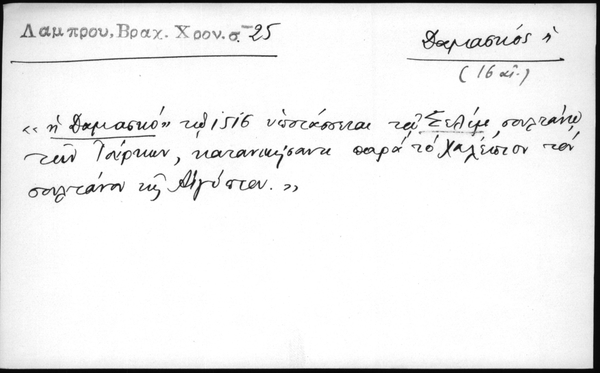 Λαμπρου, Βραχ. Χρον. σ. 25
Δαμασκός ἡ
(16 αἰ.)
«ἡ Δαμασκός» τῷ 1516 ὑποτάσσεται τῷ Σελίμ, σουλτάνῳ
τῶν Τούρκων, κατανικήσαντι παρά τό Χαλέπιον τόν
σουλτάνον τῆς Αἰγύπτου.»